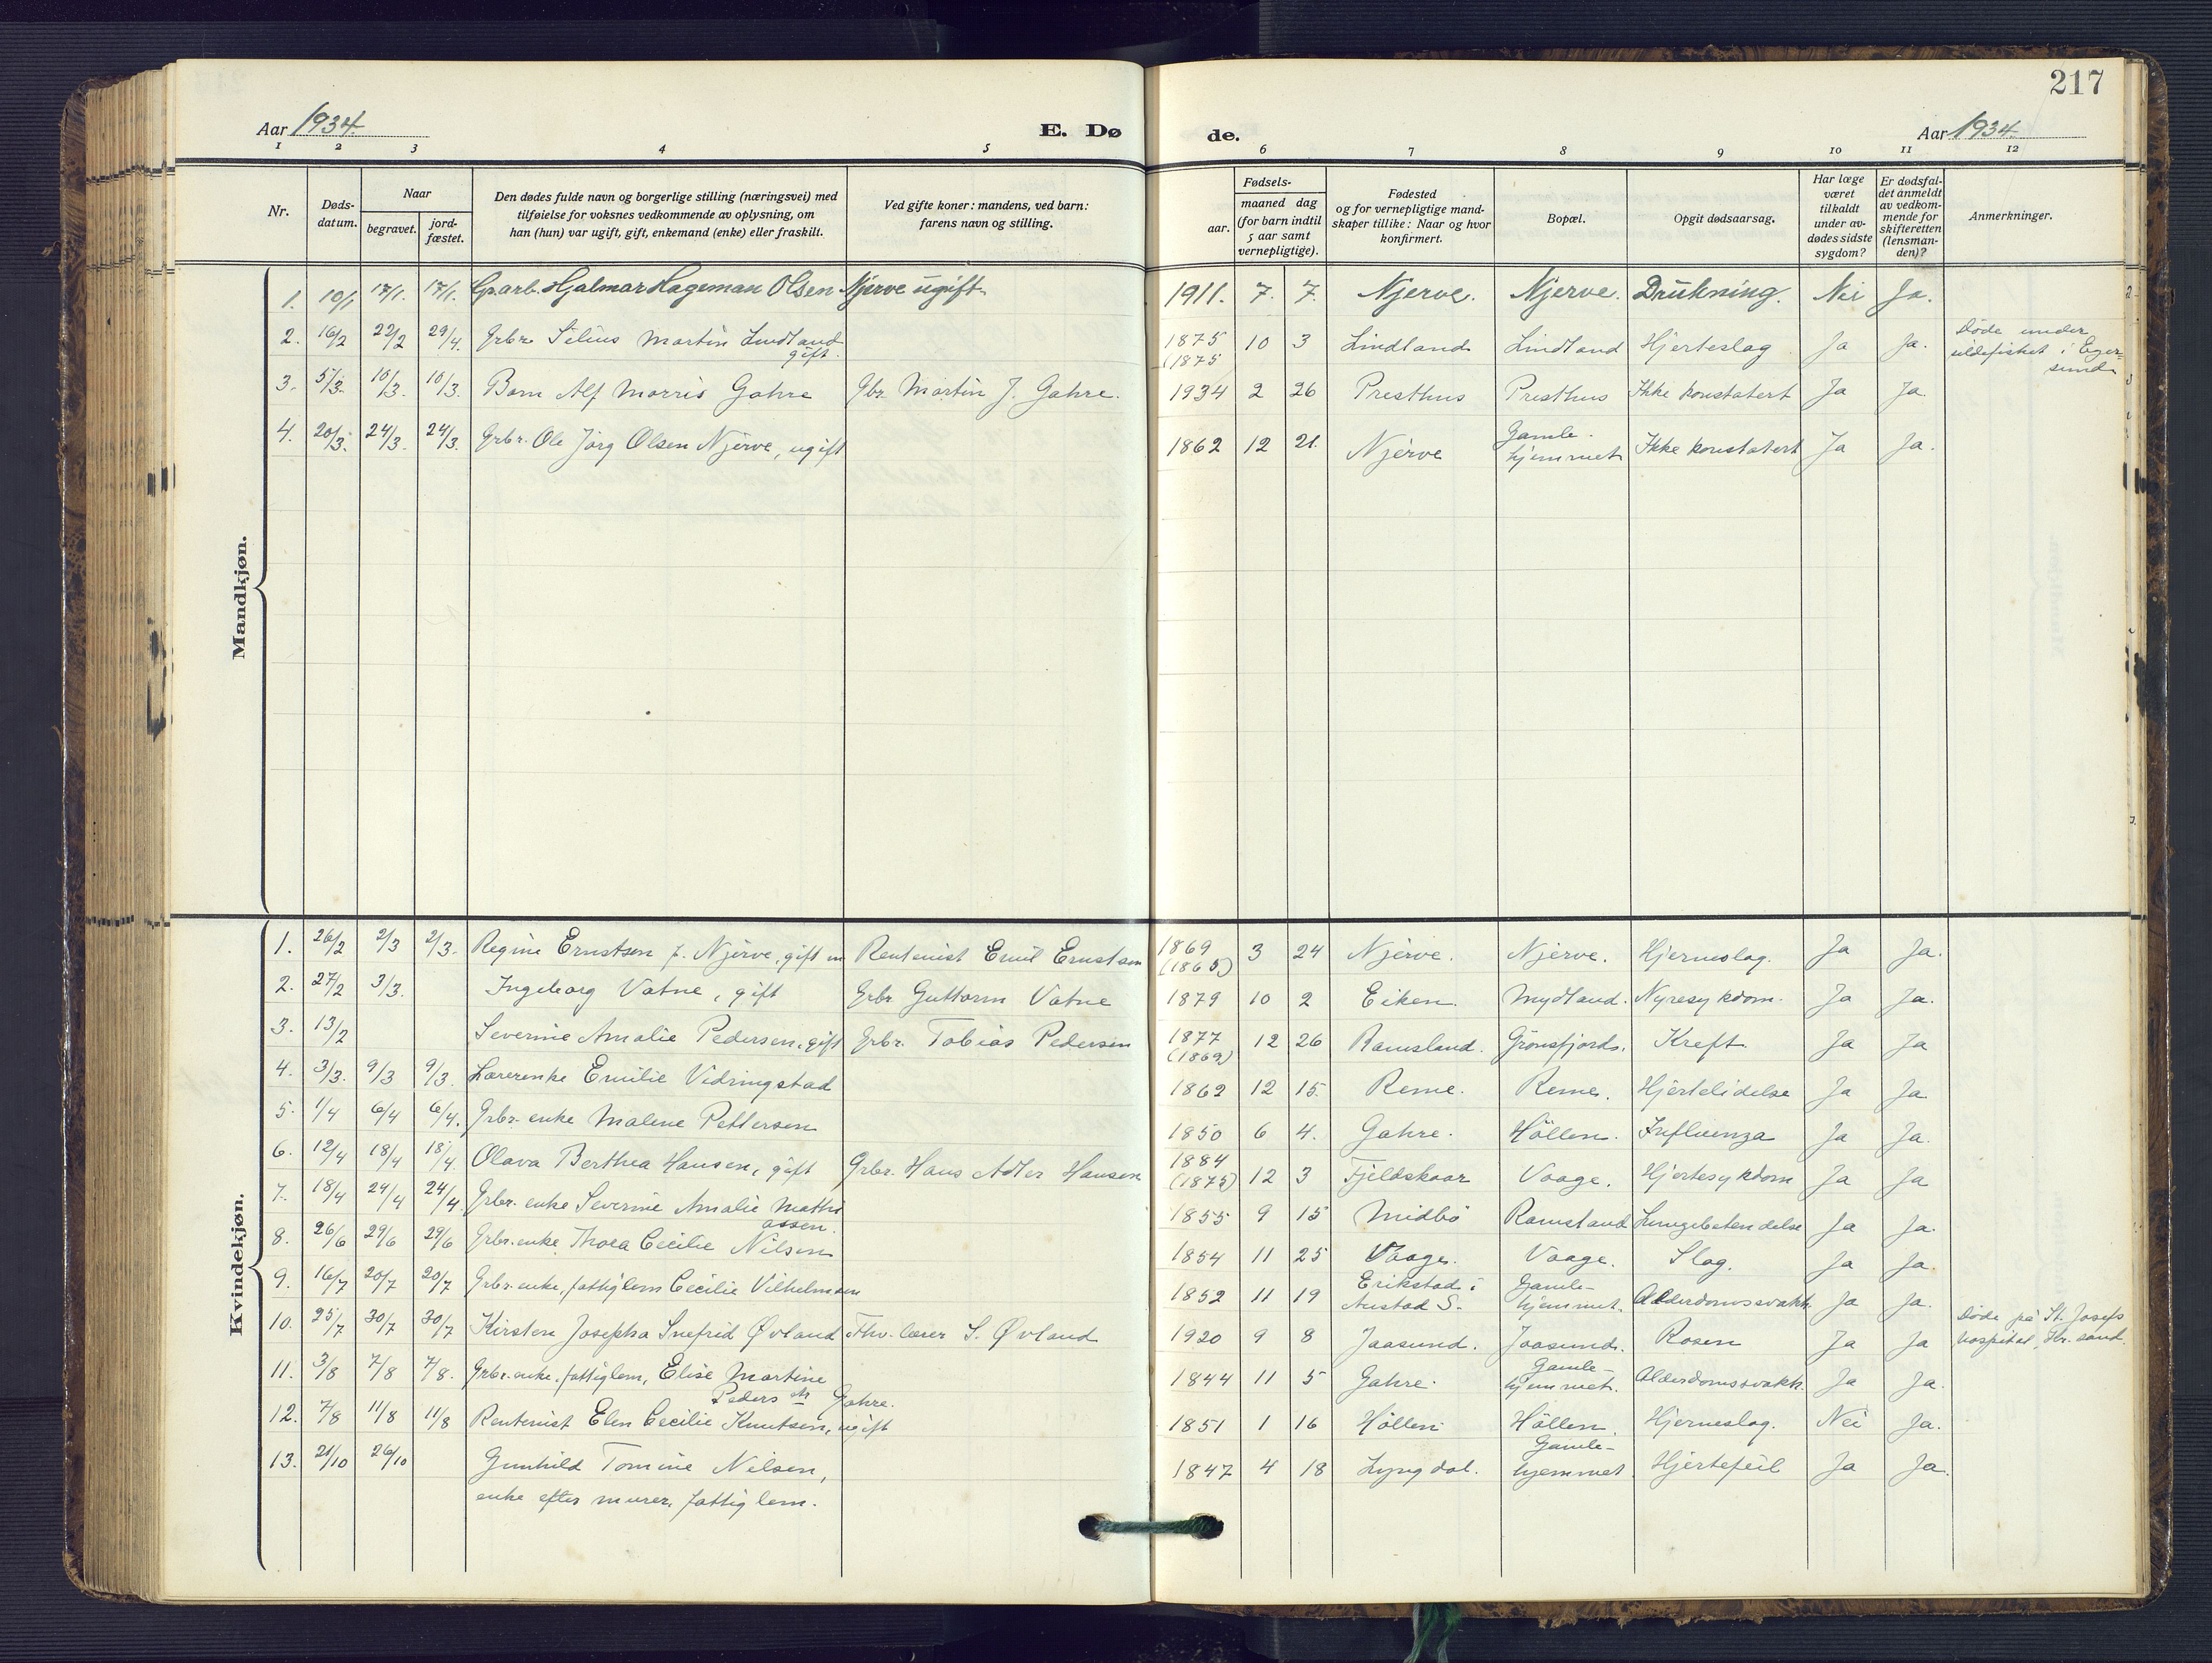 217
Aar 1934.
E. Dø
de.
Aar 1934.
1 2 3 4 5 6 7 8 9 10 11 12
Nr.
Døds-
datum.
Naar
begravet.
jord-
fæstet.
Den dødes fulde navn og borgerlige stilling (næringsvei) med
tilføielse for voksnes vedkommende av oplysning, om
han (hun) var ugift, gift, enkemand (enke) eller fraskilt.
Ved gifte koner: mandens, ved barn:
farens navn og stilling.
Fødsels-
aar.
maaned dag
(for barn indtil
5 aar samt
vernepligtige).
Fødested
og for vernepligtige mand-
skaper tillike: Naar og hvor
konfirmert.
Bopæl.
Opgit dødsaarsag.
Har læge
været
tilkaldt
under av-
dødes sidste
sygdom?
Er dødsfal-
det anmeldt
av vedkom-
mende for
skifteretten
(lensman-
den)?
Anmerkninger.
Mandkjøn.
1. 10/1 17/1. 17/1. Gr.arb. Hjalmar Hageman Olsen Njerve ugift. 1911. 7. 7. Njerve. Njerve. Drukning. Nei Ja.
2. 16/2 22/2 29/4. Grbr. Selius Martin Lindland
gift. 1875 10 3 Lindland Lindland Hjerteslag Ja Ja. Døde under
(1875 sildefisket i Eger-
sund
3. 5/3. 10/3. 10/3. Barn Alf Morris Gahre Gbr. Martin J. Gahre. 1934 2 26 Presthus Presthus Ikke konstatert Ja Ja.
4. 20/3. 24/3. 24/3. Grbr. Ole Jørg Olsen Njerve, ugift 1862 12 21. Njerve Gamle-
hjemmet Ikke konstatert Ja Ja.
Kvindekjøn.
1. 26/2 2/3 2/3. Regine Ernstsen f. Njerve, gift m Rentenist Emil Ernstsen 1869 3 24 Njerve. Njerve. Hjerneslag. Ja Ja.
(1865)
2. 27/2 3/3. Ingeborg Vatne, gift Grbr. Guttorm Vatne 1879 10 2 Eiken. Mydland. Nyresykdom. Ja Ja.
3. 13/2 Severine Amalie Pedersen, gift Grbr. Tobias Pedersen 1877 12 26 Ramsland. Grønsfjord. Kreft Ja Ja
(1869)
4. 3/3. 9/3 9/3. Lærerenke Emilie Vidringstad 1862 12 15. Reme. Reme. Hjertelidelse Ja Ja
5. 1/4 6/4 6/4. Grbr. enke Malene Pettersen 1850 6 4. Gahre. Hållen. Influenza Ja Ja.
6. 12/4 18/4 18/4. Olava Berthea Hansen, gift Grbr. Hans Adler Hansen 1884 12 3 Fjeldskaar Vaage. Hjertesykdom Ja Ja
(1875)
7. 18/4 24/4 24/4. Grbr. enke Severine Amalie Mathi
assen. 1855 9 15 Midbø Ramsland Lungebetendelse Ja Ja.
8. 26/6 29/6 29/6 Grbr. enke Thora Cecilie Nilsen 1854 11 25 Vaage. Vaage. Slag. Ja Ja.
9. 16/7 20/7 20/7 Grbr. enke, fattiglem Cecilie Vilhelmsen 1852 11 19 Erikstad i
Austad S. Gamle-
hjemmet. Alderdomssvakh. Ja Ja.
10. 25/7 30/7 30/7 Kirsten Josepha Snefrid Øvland Fhv. lærer S. Øvland 1920 9 8 Jaasund. Jaasund. Rosen Ja Ja Døde på St. Josefs
hospital, Kr.sand.
11. 3/8 7/8 7/8. Grbr. enke, fattiglem, Elise Martine
Peders dtr Gahre. 1844 11 5 Gahre. Gamle-
hjemmet. Alderdomssvakh. Ja Ja.
12. 7/8 11/8 11/8 Rentenist Elen Cecilie Knutsen, ugift 1851 1 16 Hållen Hållen. Hjerneslag. Nei Ja.
13. 21/10 26/10 Gunhild Tomine Nilsen,
enke efter murer, fattiglem. 1847 4 18 Lyngdal. Gamle-
hjemmet. Hjertefeil Ja Ja.